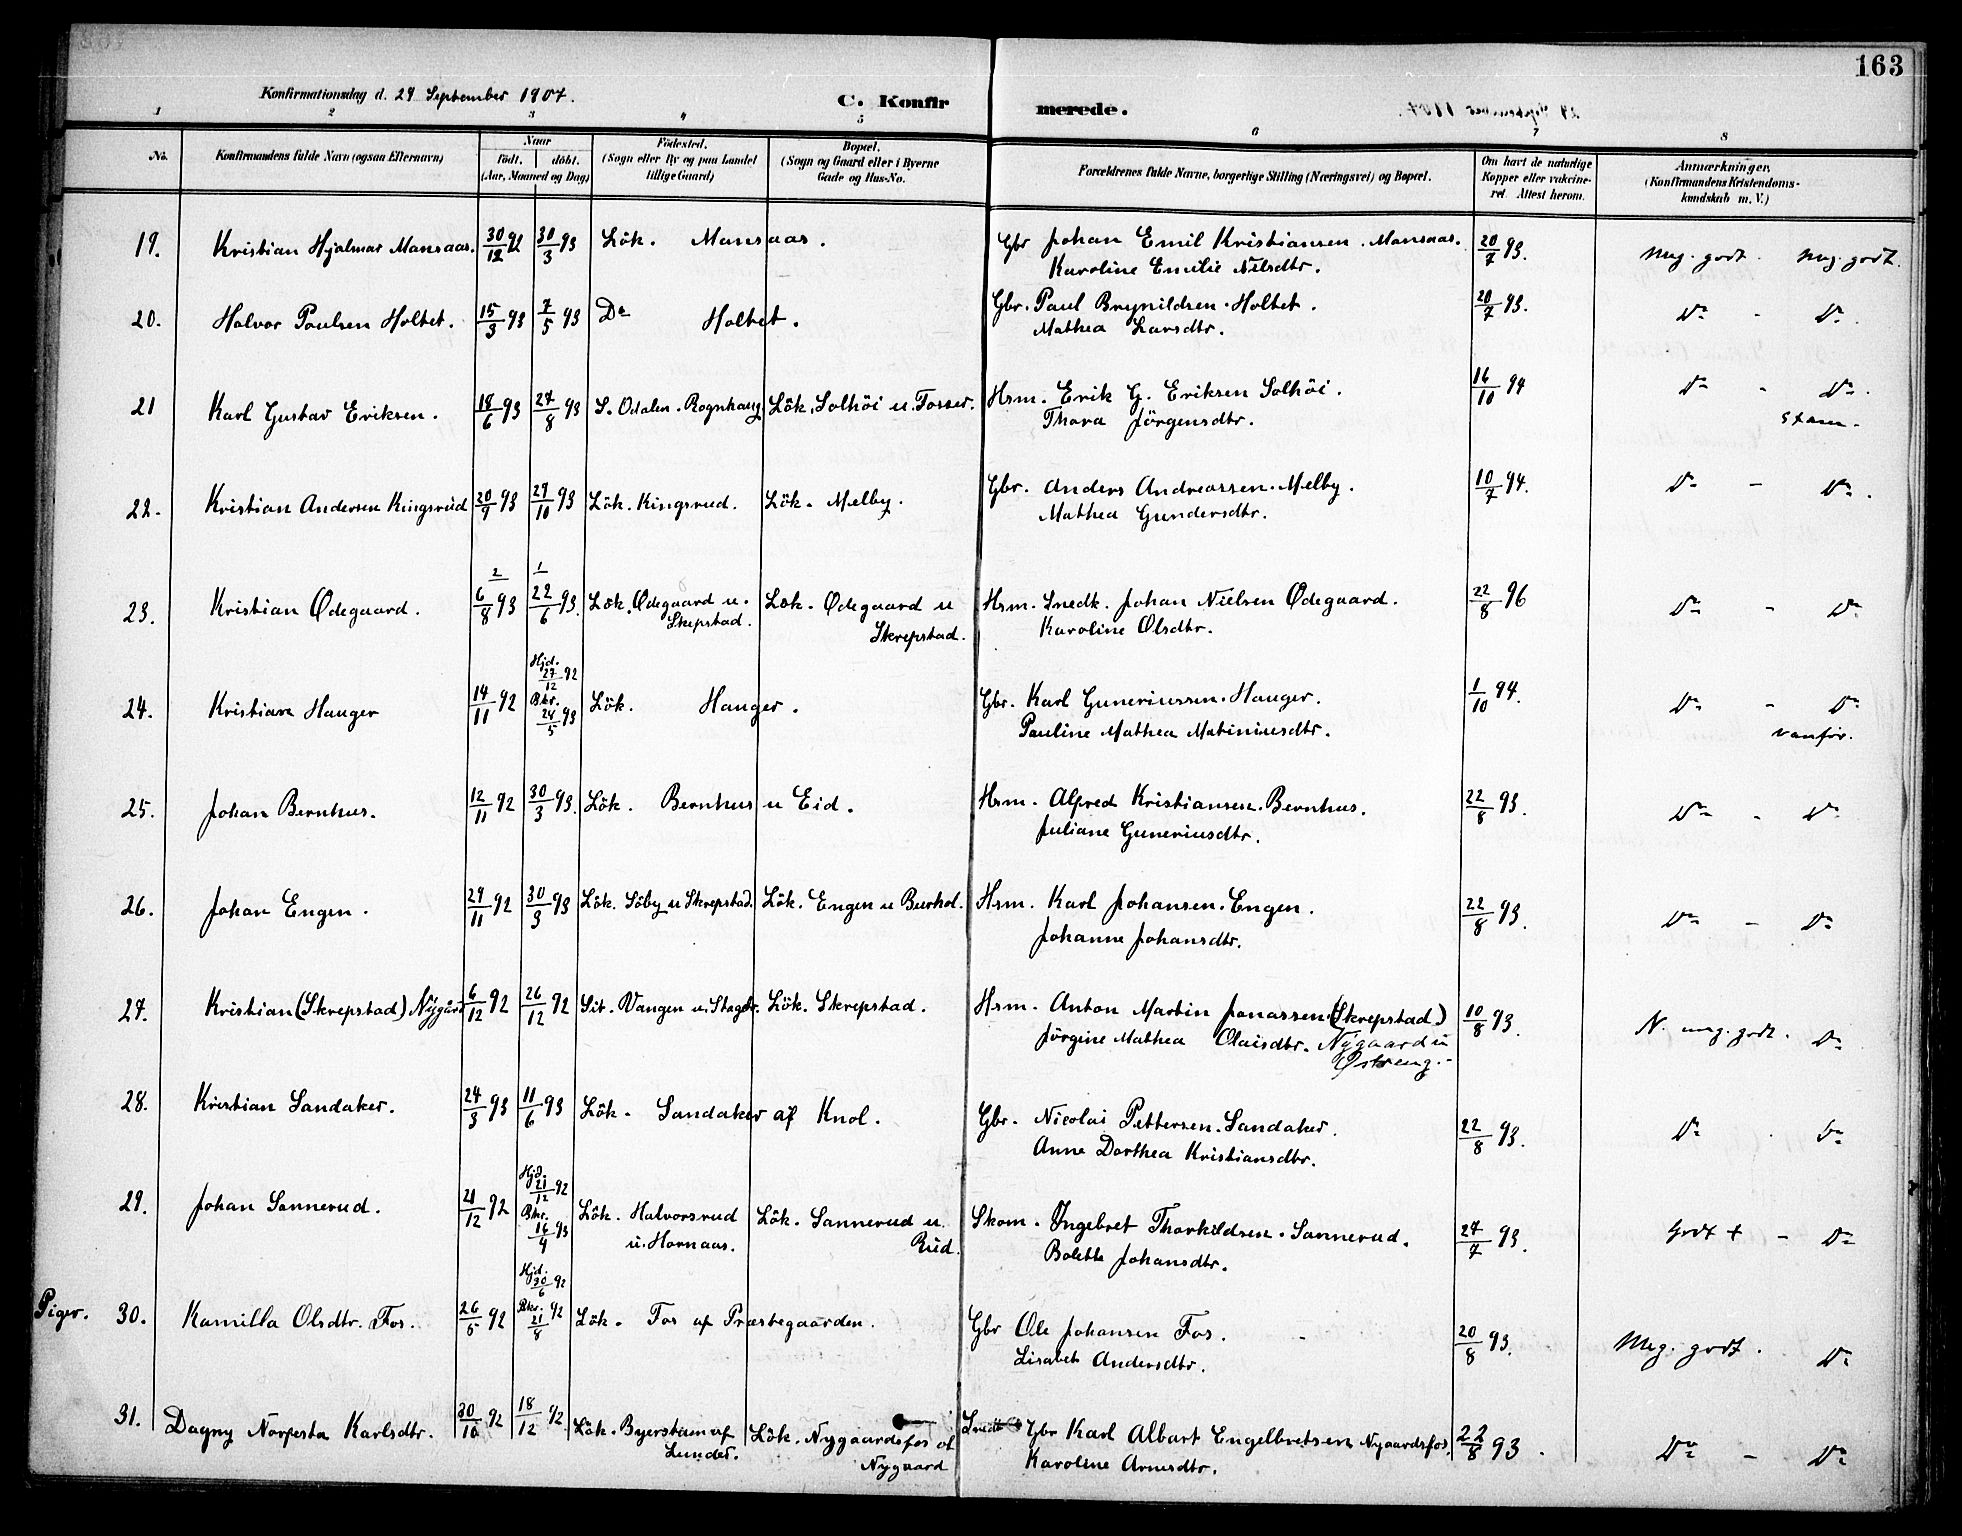 163
Konfirmationsdag d. 29 September 1907.
C. Konfirmerede.
1 2 3 4 5 6 7 8
No. Konfirmandens fulde Navn (ogsaa Efternavn) Naar født. døbt. (Aar, Maaned og Dag) Fødested. (Sogn eller By og paa Landet tillige Gaard) Bopæl. (Sogn og Gaard eller i Byerne Gade og Hus-No. Forældrenes fulde Navne, borgerlige Stilling (Næringsvei) og Bopæl. Om havt de naturlige Kopper eller vakcineret. Attest herom. Anmærkninger. (Konfirmandens Kristendomskundskab m. V.)
19. Kristian Hjalmar Mansaas. 30/12 92 30/3 93 Lök. Mansaas. Gbr Johan Emil Kristiansen. Mansaas. 20/7 93. Meg. godt. Meg. godt.
Karoline Emilie Nilsdtr.
20. Halvor Paulsen Holtet. 15/3 93 7/5 93 Do Holtet. Gbr. Paul Brynildsen. Holtet. 20/7 93. Do - Do.
Mathea Larsdtr.
21 Karl Gustav Eriksen. 18/6 93 27/8 93 S. Odalen. Rognhaug Lök. Solhöi u. Fosser. Hsm. Erik G. Eriksen Solhöi. 16/10 94 Do - Do.
Thora Jörgensdtr. stam.
22. Kristian Andersen Kingsrud 20/9 93 29/10 93 Lök. Kingsrud. Lök. Melby. Gbr. Anders Andreassen. Melby. 10/7 94. Do - Do.
Mathea Gundersdtr.
2 1
23. Kristian Ødegaard. 6/8 93 22/6 93. Lök. Ødegaard u. Skepstad. Lök. Ødegaard u Skrepstad. Hsm. Snedk. Johan Nielsen Ødegaard. 22/8 96 Do - Do
Karoline Olsdtr.
24. Kristian Hauger 14/11 92 Hjd. 27/12 92 Bkr. 24/5 93 Lök. Hauger. Gbr. Karl Gunerius­sen. Hauger. 1/10 94. Do - Do
Pauline Mathea Matiniusdtr. vanför.
25. Johan Bernhus. 12/11 92 30/3 93. Lök. Bernhus u Eid. Hsm. Alfred Kristiansen. Bernhus. 22/8 93. Do - Do
Juliane Guneriusdtr.
26. Johan Engen. 29/11 92 30/3 93 Lök. Söby u Skrepstad. Lök. Engen u Burhol. Hsm. Karl Johansen. Engen. 22/8 93. Do - Do
Johanne Johansdtr.
27. Kristian (Skrepstad) Nygård 6/12 92 26/12 92 Sit. Vangen u. Lök. Skrepstad. Hsm. Anton Martin Jonassen (Skrepstad) 10/8 93. N. meg. godt. Do
Jörgine Mathea Olaisdtr. Nygaard u
Østreng.
28. Kristian Sandaker. 24/3 93 11/6 93 Lök. Sandaker af Knol. Gbr. Nicolai Pettersen. Sandaker. 22/8 93. Do . Do
Anne Dorthea Kristiansdtr.
29. Johan Sannerud. 21/12 92 Hjd 21/12 92 Bkr. 16/4 93 Lök. Halvorsrud u. Hornaas. Lök. Sannerud u. Rud. Skom. Ingebret Thorkildsen. Sannerud. 27/7 93. Godt + - Do
Bolette Johansdtr.
Piger. 30. Kamilla Olsdtr. Fos. 26/5 92 Hjd. 30/6 92 Bkr. 21/8 92 Lök. Fos af Præstegaarden. Gbr Ole Johansen Fos. 20/8 93. Meg. godt. Do
Lisabet Andersdtr.
31. Dagny Karlsdtr. 30/10 92 18/12 92 Lök. Lunder. Lök. Nygaardsfos af Nygaard Snedk Gbr Karl Albert Engelbretsen Nygaardsfos. 22/8 93. Do - Do
Karoline Arnesdtr.